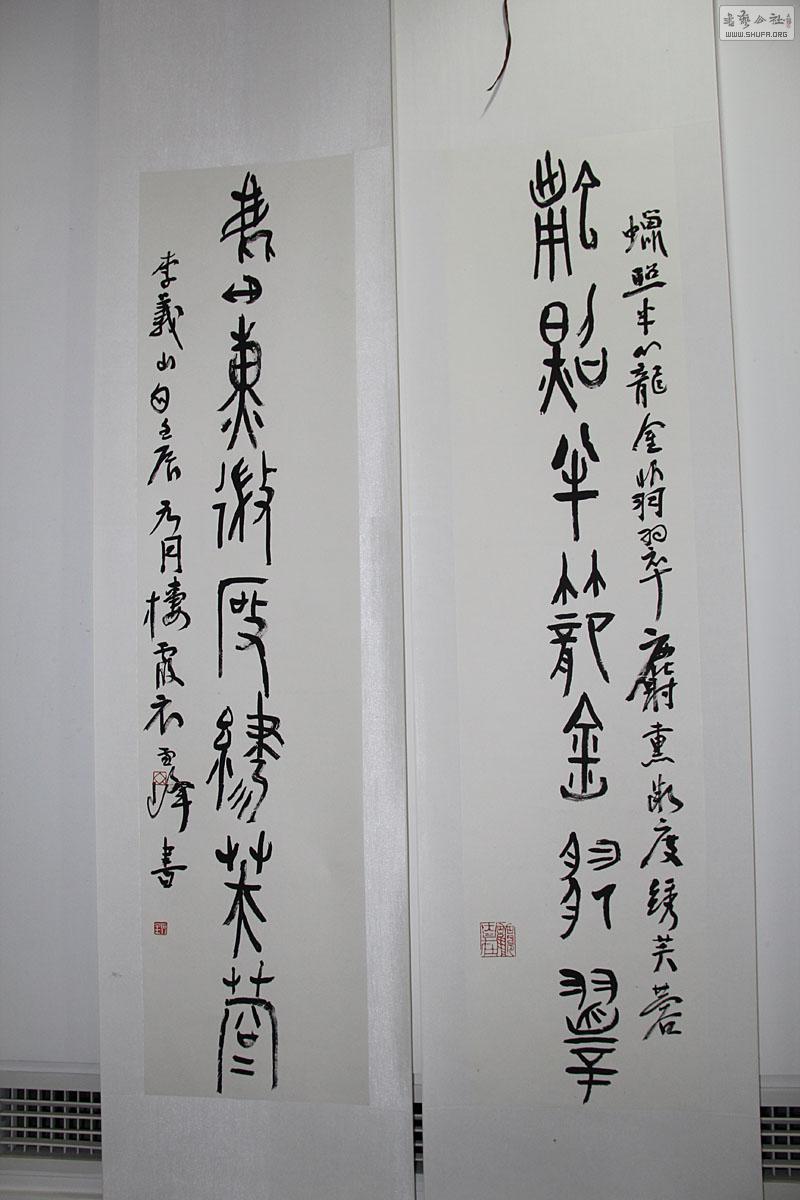 蠟照半籠金翡翠麝熏微度綉芙蓉
蠟照半籠金翡翠
麝熏微度繡芙蓉
李義山句壬辰元月棲霞衣雪峰書
書藝公社
WWW.SHUFA.ORG